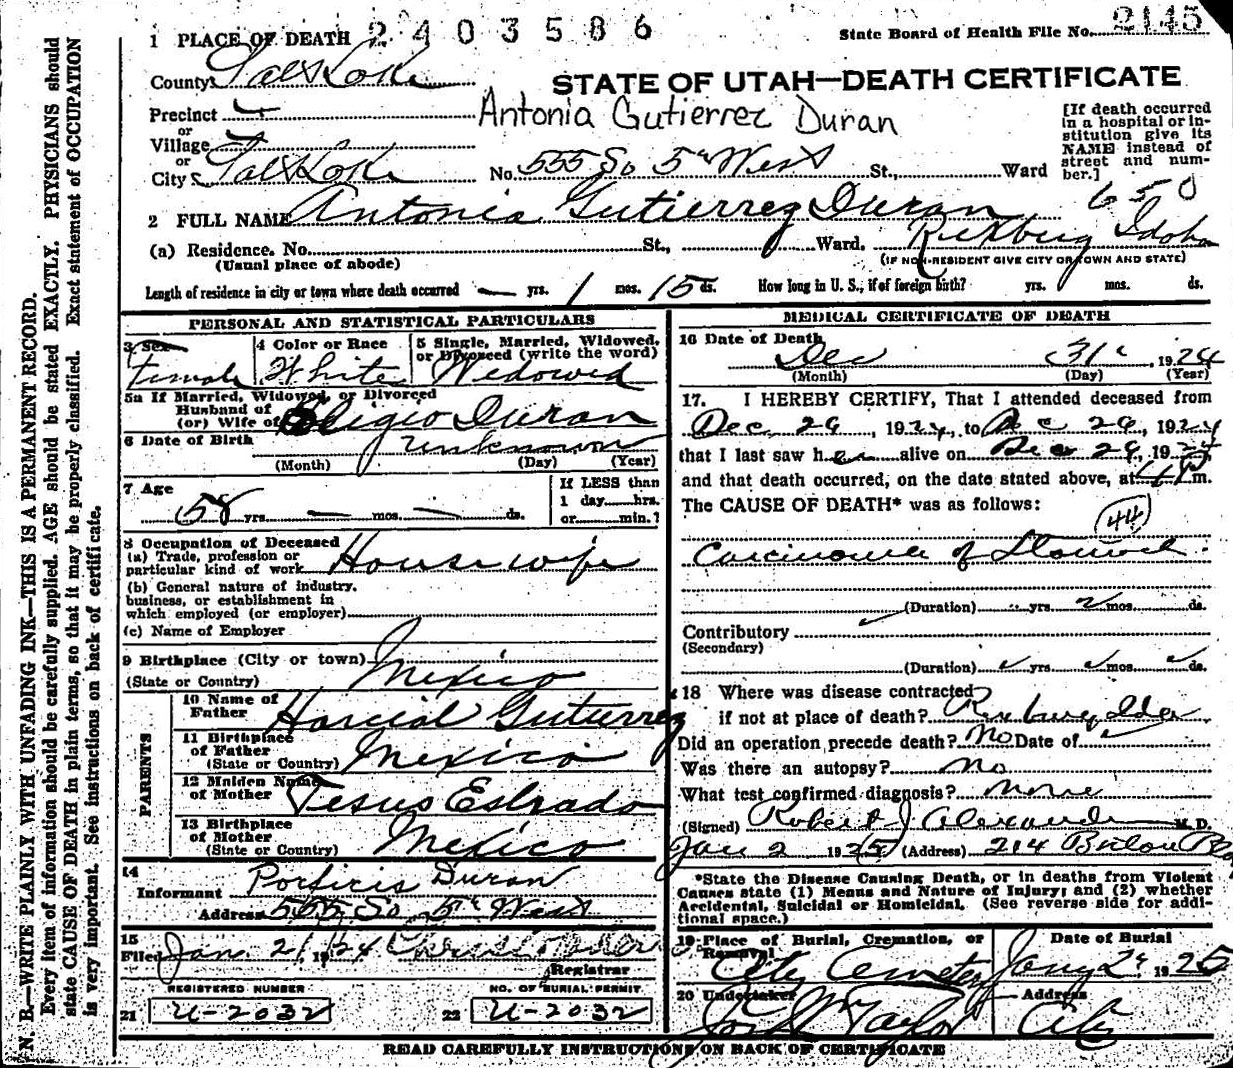 2403586
State Board of Health File No. 2145
1 PLACE OF DEATH
County Salt Lake
STATE OF UTAH—DEATH CERTIFICATE
Precinct
Antonia Gutierrez Duran
[If death occurred in a hospital or institution give its NAME instead of street and number.]
or
Village
or
City Salt Lake No. 555 So 5" West St., Ward
650
2 FULL NAME Antonia Gutierrez Duran
(a) Residence. No. St., Ward. Rexburg Idaho
(Usual place of abode) (IF NON-RESIDENT GIVE CITY OR TOWN AND STATE)
Length of residence in city or town where death occurred — yrs. 1 mos. 15 ds. How long in U. S., if of foreign birth? yrs. mos. ds.
PERSONAL AND STATISTICAL PARTICULARS
3 Sex
Female
4 Color or Race
White
5 Single, Married, Widowed, or Divorced (write the word)
Widowed
5a If Married, Widowed, or Divorced
Husband of
(or) Wife of Eligio Duran
6 Date of Birth unknown
(Month) (Day) (Year)
7 Age
58 yrs. — mos. — ds.
If LESS than
1 day hrs.
or min.?
8 Occupation of Deceased
(a) Trade, profession or
particular kind of work Housewife
(b) General nature of industry,
business, or establishment in
which employed (or employer)
(c) Name of Employer
9 Birthplace (City or town)
(State or Country) Mexico
PARENTS
10 Name of
Father Harcial Gutierrez
11 Birthplace
of Father
(State or Country) Mexico
12 Maiden Name
of Mother Jesus Estrada
13 Birthplace
of Mother
(State or Country) Mexico
14
Informant Porficis Duran
Address 555 So 5" West
15
Filed Jan. 2/ 1924
Registrar
REGISTERED NUMBER
21 U-2032
NO. OF BURIAL PERMIT
22 U-2032
MEDICAL CERTIFICATE OF DEATH
16 Date of Death
Dec 31" 1924
(Month) (Day) (Year)
17. I HEREBY CERTIFY, That I attended deceased from
Dec 29, 1924, to Dec 29, 1924
that I last saw her alive on Dec 29, 1924,
and that death occurred, on the date stated above, at 4 P m.
The CAUSE OF DEATH* was as follows:
44
Carcinoma of Stomach.
(Duration) yrs. 2 mos. ds.
Contributory
(Secondary)
(Duration) yrs. mos. ds.
18 Where was disease contracted
if not at place of death? Rexburg Ida
Did an operation precede death? No Date of
Was there an autopsy? No
What test confirmed diagnosis? None
(Signed) Robert J Alexander M. D.
Jan 2 1925 (Address) 214
*State the Disease Causing Death, or in deaths from Violent
Causes state (1) Means and Nature of Injury; and (2) whether
Accidental, Suicidal or Homicidal. (See reverse side for additional space.)
19 Place of Burial, Cremation, or
Removal
City Cemetery
Date of Burial
Jany 2" 1925
20 Undertaker
Taylor
Address
City
READ CAREFULLY INSTRUCTIONS ON BACK OF CERTIFICATE
N. B.—WRITE PLAINLY WITH UNFADING INK—THIS IS A PERMANENT RECORD.
Every item of information should be carefully supplied. AGE should be stated EXACTLY. PHYSICIANS should
state CAUSE OF DEATH in plain terms, so that it may be properly classified. Exact statement of OCCUPATION
is very important. See instructions on back of certificate.